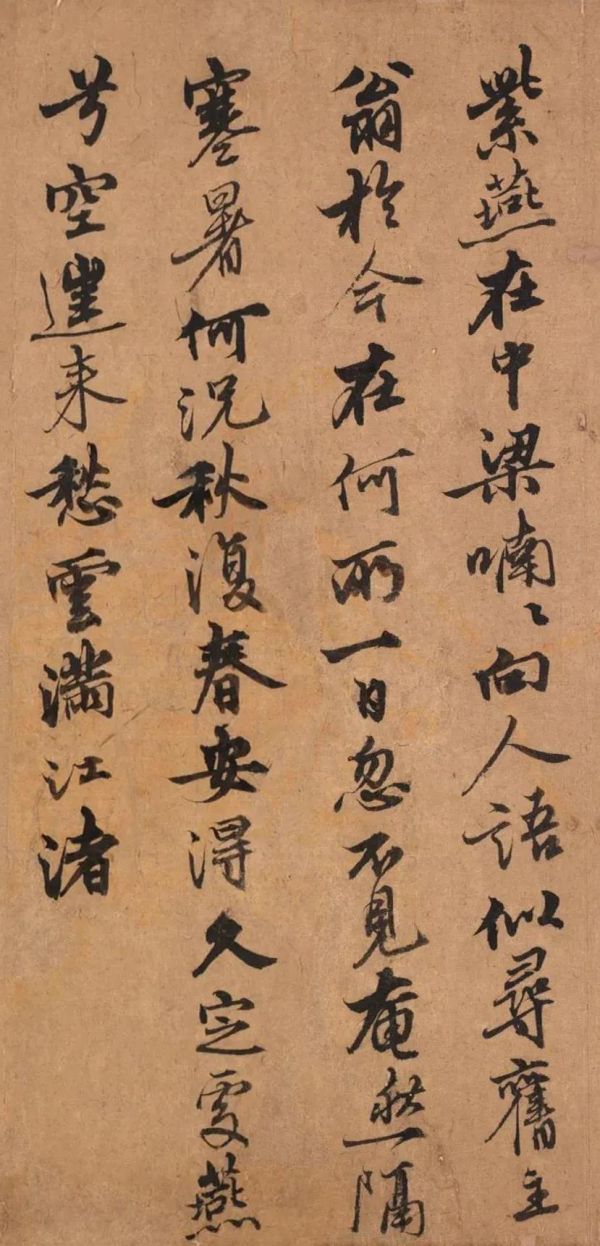 紫燕在中梁喃々向人語似尋舊主
翁於今在何所一日忽不見奄然隔
寒暑何況秋復春安得久定處燕
兮空来愁雲滿江渚